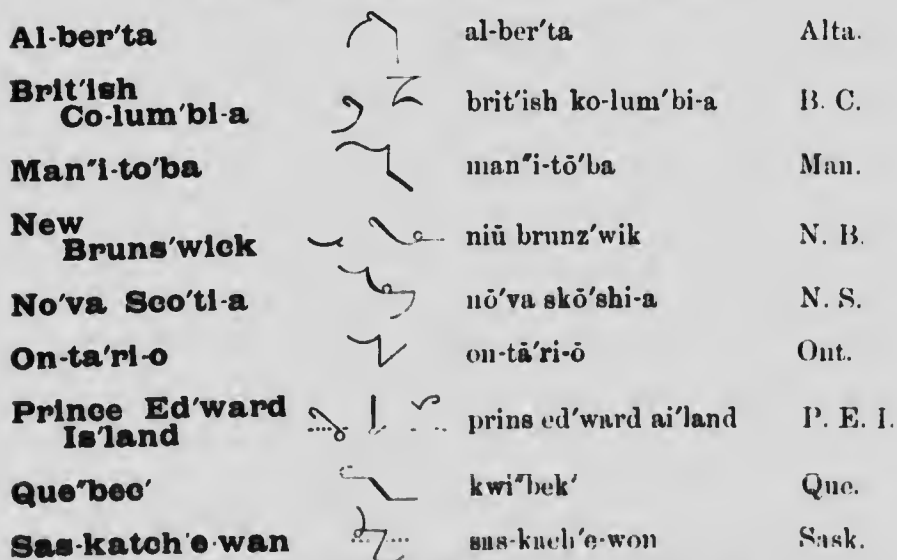 Al-ber′ta al-ber′ta Alta.
Brit′ish
Co-lum′bi-a brit′ish ko-lum′bi-a B. C.
Man″i-to′ba man″i-tō′ba Man.
New
Bruns′wick niū brunz′wik N. B.
No′va Sco′ti-a nō′va skō′shi-a N. S.
On-ta′ri-o on-tā′ri-ō Ont.
Prince Ed′ward
Is′land prins ed′ward ai′land P. E. I.
Que″bec′ kwi″bek′ Que.
Sas-katch′e-wan sas-kach′e-won Sask.